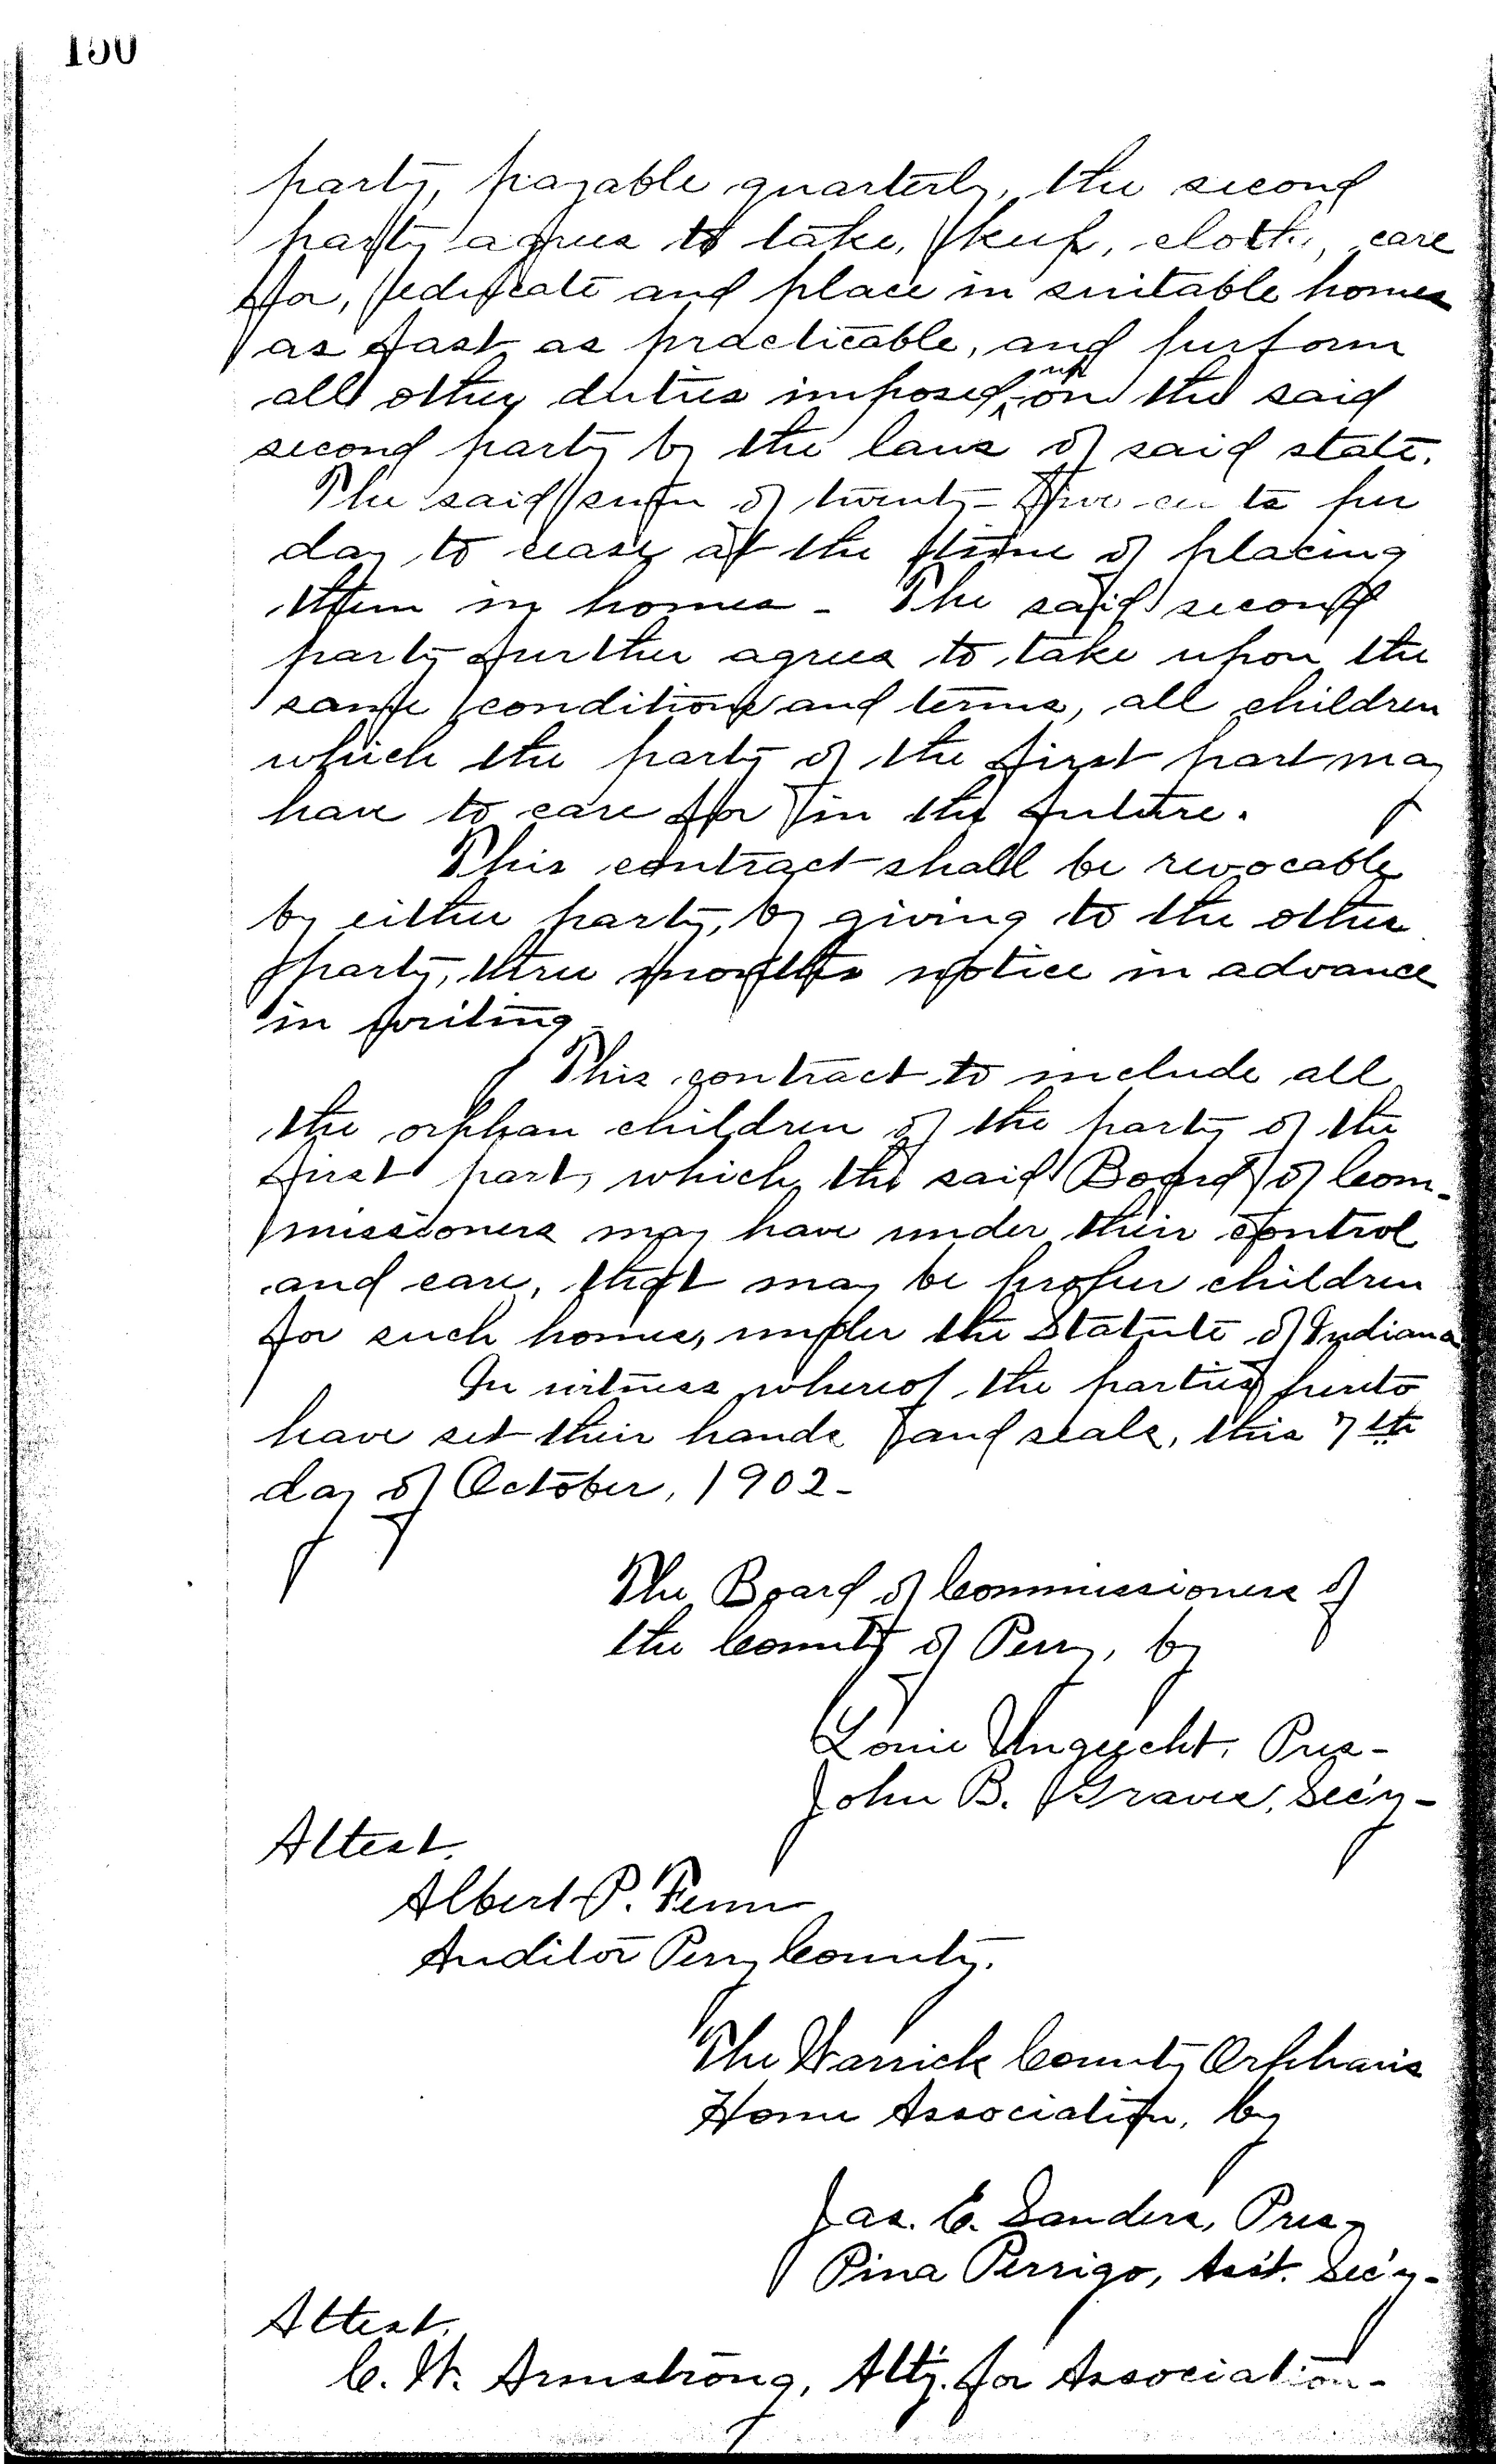 150
party, payable quarterly, the second
party agrees to take, keep, clothe, care
for, educate and place in suitable homes
as fast as practicable, and perform
all other duties imposed up on the said
second party by the laws of said state.
The said sum of twenty-five cents per
day to cease at the time of placing
them in homes - The said second
party further agrees to take upon the
same conditions and terms, all children
which the party of the first part may
have to care for in the future.
This contract shall be revocable
by either party, by giving to the other
party, three months notice in advance
in writing
This contract to include all
the orphan children of the party of the
first part, which the said Board of Com-
missioners may have under their control
and care, that may be proper children
for such homes, under the Statute of Indiana
In witness whereof the parties hereto
have set their hands and seals, this 7th
day of October, 1902-
The Board of Commissioners of
the County of Perry, by
Louie Pres-
John B. Graves, Sec'y-
Attest.
Albert P. Fenn
Auditor Perry County.
The Warrick County Orphans
Home Association, by
Jas. E. Sanders, Pres-
Pina Perrigo, Ass't. Sec'y-
Attest.
C. W. Armstrong, Att'y. for Association-